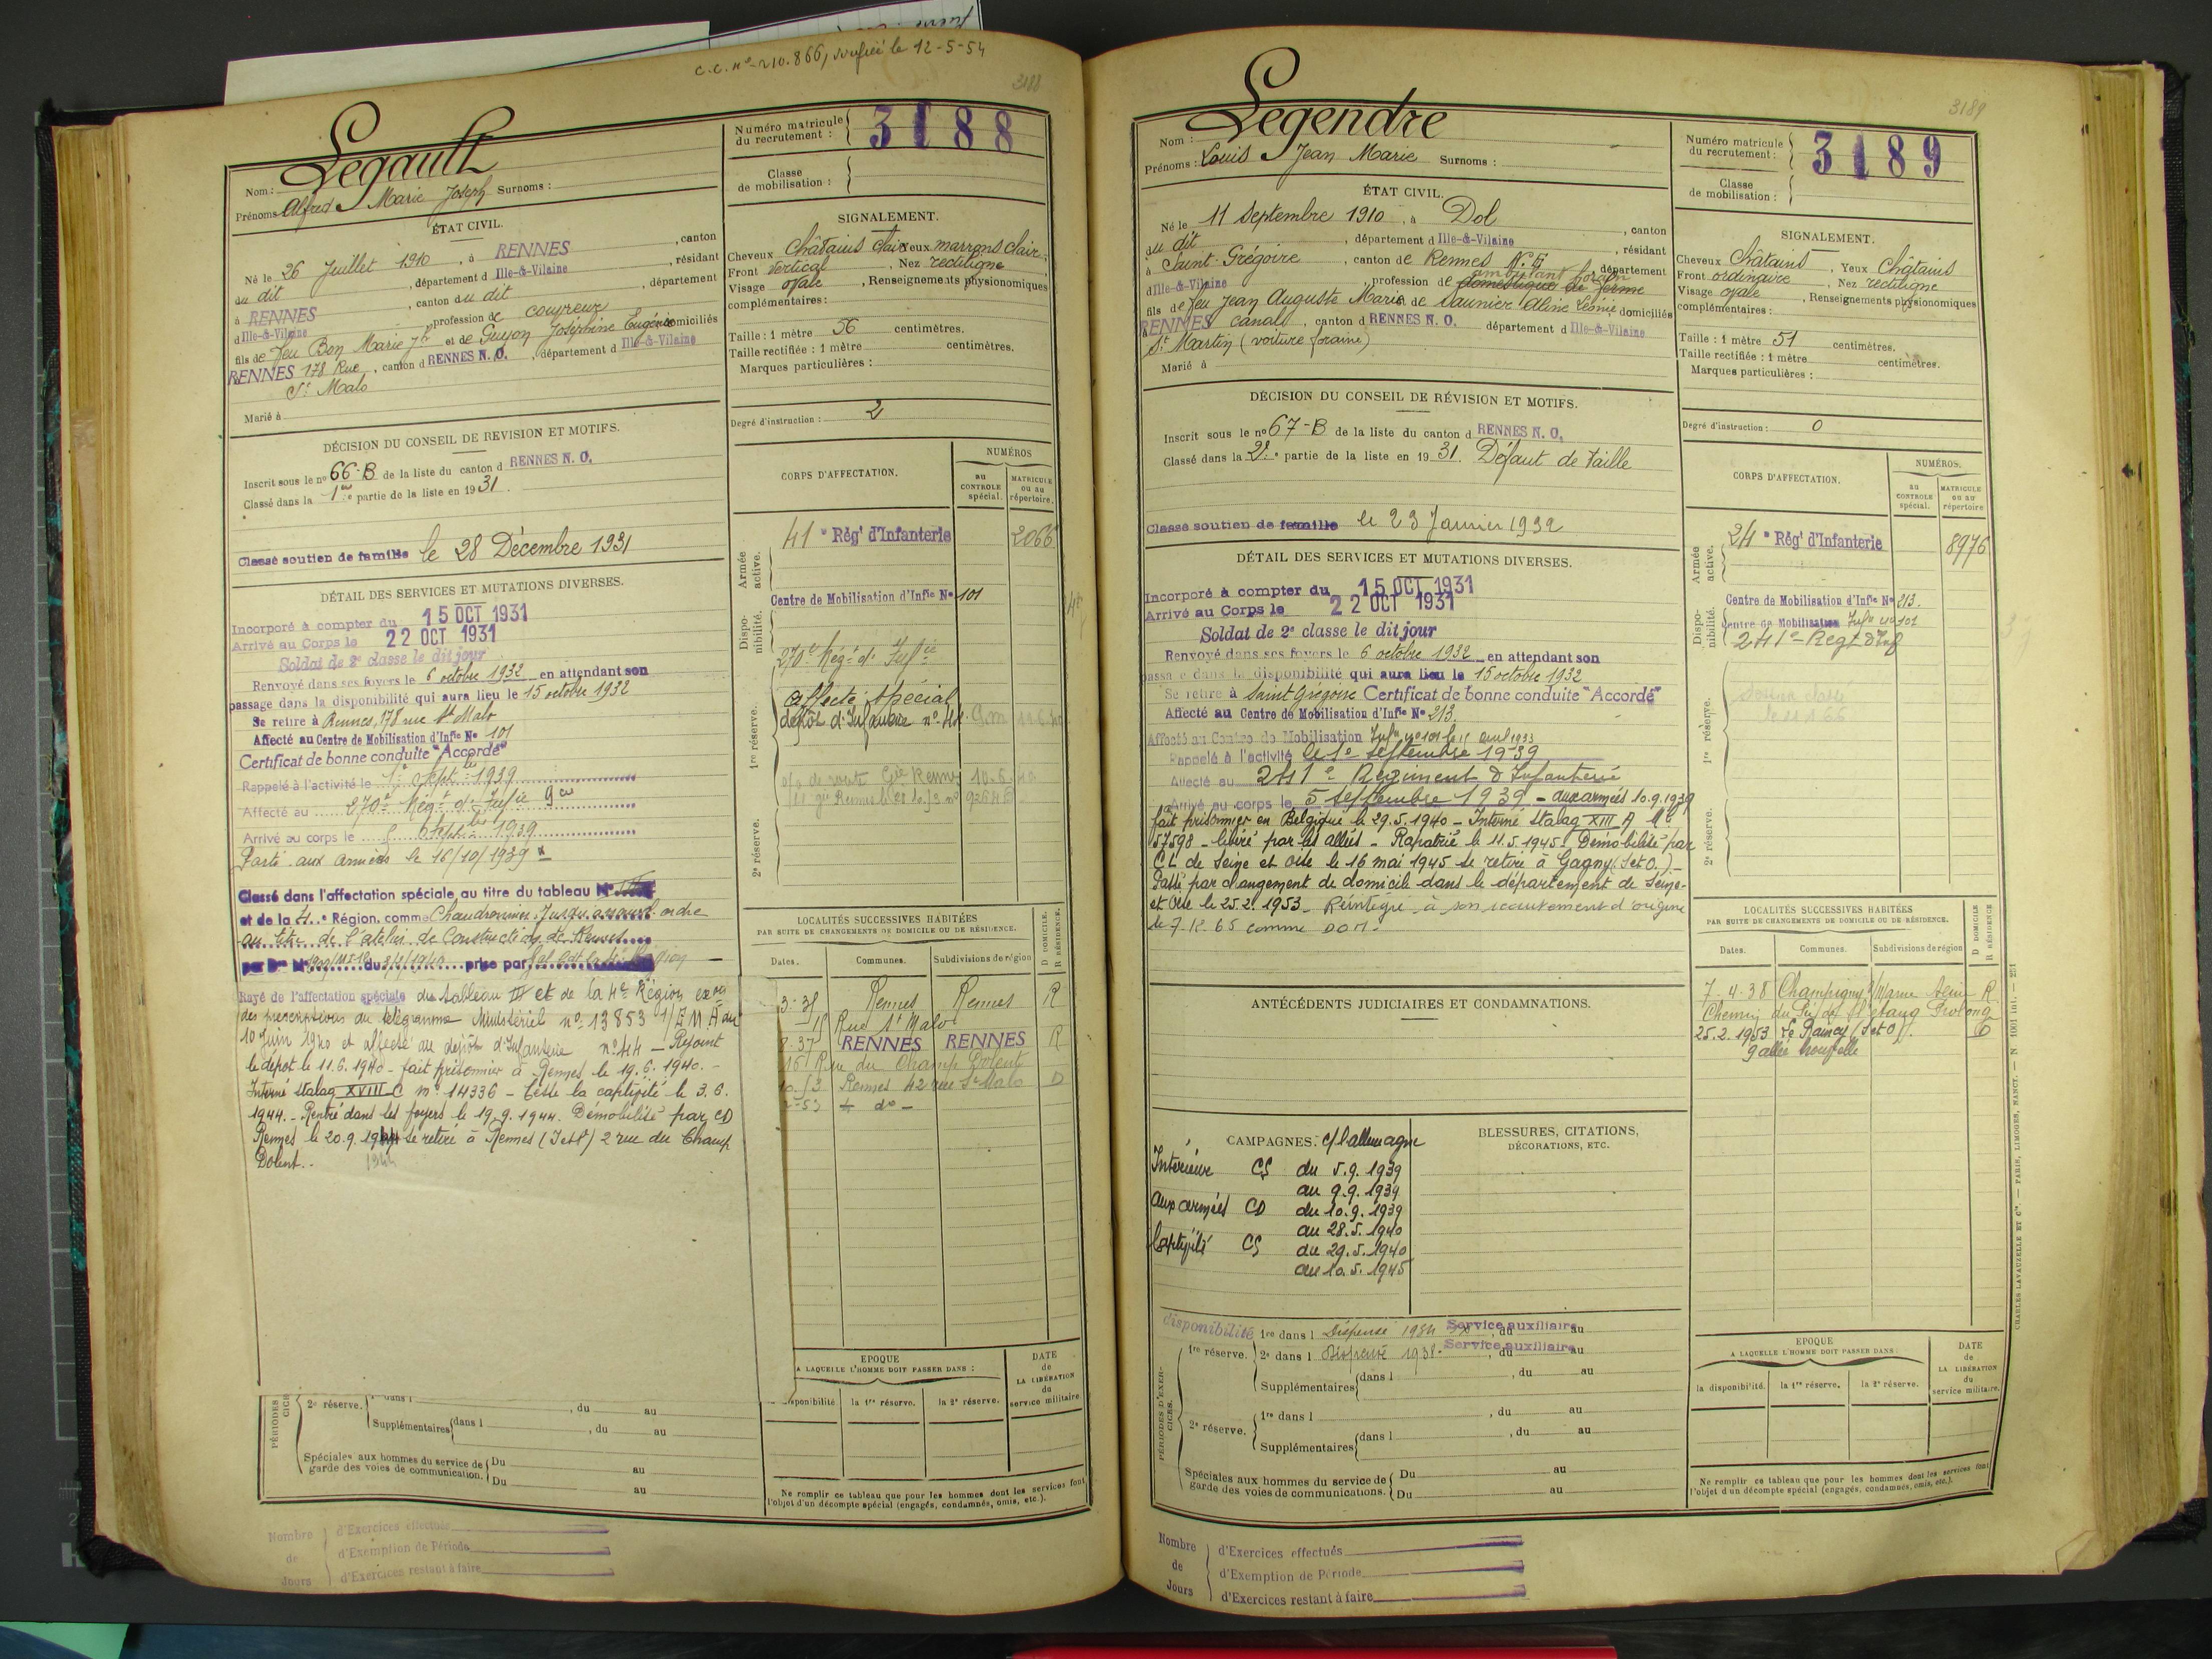 C.C. n° 210.866, vérifié le 12-5-54
3188
Legault
Nom :
Prénoms : Alfred Marie Joseph Surnoms :
Numéro matricule du recrutement : 3188
Classe de mobilisation :
ÉTAT CIVIL.
Né le 26 Juillet 1910, à RENNES, canton
du dit, département d Ille-&-Vilaine, résidant
à RENNES, canton du dit, département
d Ille-&-Vilaine, profession de couvreur
fils de feu Bon Marie Jh et de Guyon Joséphine Eugénie domiciliés
à RENNES 178 Rue, canton d RENNES N. O., département d Ille-&-Vilaine
St Malo
Marié à
SIGNALEMENT.
Cheveux Châtains clair Yeux marrons clair
Front vertical, Nez rectiligne
Visage ovale, Renseignements physionomiques
complémentaires :
Taille : 1 mètre 56 centimètres.
Taille rectifiée : 1 mètre centimètres.
Marques particulières :
Degré d'instruction : 2
DÉCISION DU CONSEIL DE REVISION ET MOTIFS.
Inscrit sous le n° 66-B de la liste du canton d RENNES N. O.
Classé dans la 1re partie de la liste en 1931.
Classé soutien de famille le 28 Décembre 1931
CORPS D'AFFECTATION.
NUMÉROS
au CONTROLE spécial.
MATRICULE ou au répertoire.
Armée active.
41e Régt d'Infanterie 2066
Disponibilité.
Centre de Mobilisation d'Infie N° 101
270e Régt d'Infie
1re réserve.
Affecté spécial
dépôt d'Infanterie n° 44
2e réserve.
DÉTAIL DES SERVICES ET MUTATIONS DIVERSES.
Incorporé à compter du 15 OCT 1931
Arrivé au Corps le 22 OCT 1931
Soldat de 2e classe le dit jour
Renvoyé dans ses foyers le 6 octobre 1932 en attendant son
passage dans la disponibilité qui aura lieu le 15 octobre 1932
Se retire à Rennes, 178 rue St Malo
Affecté au Centre de Mobilisation d'Infie N° 101
Certificat de bonne conduite "Accordé"
Rappelé à l'activité le 1er Septbre 1939
Affecté au 270e Régt d'Infie
Arrivé au corps le Septbre 1939
Parti aux armées le 16/10/1939
Classé dans l'affectation spéciale au titre du tableau N° III
et de la 4e Région, comme Chaudronnier. Jusqu'à nouvel ordre
au titre de l'atelier de Construction de Rennes
Rayé de l'affectation spéciale du tableau III et de la 4e Région
des prescriptions du télégramme Ministériel n° 13853 1/EMA du
10 Juin 1940 et affecté au dépôt d'Infanterie n° 44 - Rejoint
le dépôt le 11.6.1940 - fait prisonnier à Rennes le 19.6.1940. -
Interné stalag XVIII C n° 14336 - Cesse la captivité le 3.6.
1944. - Rentré dans les foyers le 19.9.1944. Démobilisé par CD
Rennes le 20.9.1944 se retire à Rennes (I et V) 2 rue du Champ
Dolent. -
1944
LOCALITÉS SUCCESSIVES HABITÉES
PAR SUITE DE CHANGEMENTS DE DOMICILE OU DE RÉSIDENCE.
D DOMICILE. R RÉSIDENCE.
Dates. Communes. Subdivisions de région
3-35 Rennes Rennes R
Rue St Malo
8-37 RENNES RENNES R
16 Rue du Champ Dolent
Rennes 42 rue St Malo D
EPOQUE
A LAQUELLE L'HOMME DOIT PASSER DANS :
DATE de LA LIBÉRATION du service militaire.
disponibilité. la 1re réserve. la 2e réserve.
PÉRIODES
2e réserve. dans l , du au
Supplémentaires dans l , du au
Spéciales aux hommes du service de garde des voies de communication. Du au
Du au
Ne remplir ce tableau que pour les hommes dont les services font
l'objet d'un décompte spécial (engagés, condamnés, omis, etc.).
Nombre de Jours
d'Exercices effectués
d'Exemption de Période
d'Exercices restant à faire
3189
Legendre
Nom :
Prénoms : Louis Jean Marie Surnoms :
Numéro matricule du recrutement : 3189
Classe de mobilisation :
ÉTAT CIVIL.
Né le 11 Septembre 1910, à Dol, canton
du dit, département d Ille-&-Vilaine, résidant
à Saint-Grégoire, canton de Rennes N. E, département
d Ille-&-Vilaine, profession de domestique de ferme
ambulant forain
fils de feu Jean Auguste Marie et de Saunier Aline Léonie domiciliés
à RENNES canal, canton d RENNES N. O. département d Ille-&-Vilaine
St Martin (voiture foraine)
Marié à
SIGNALEMENT.
Cheveux Châtains, Yeux Châtains
Front ordinaire, Nez rectiligne
Visage ovale, Renseignements physionomiques
complémentaires :
Taille : 1 mètre 51 centimètres.
Taille rectifiée : 1 mètre centimètres.
Marques particulières :
Degré d'instruction : 0
DÉCISION DU CONSEIL DE RÉVISION ET MOTIFS.
Inscrit sous le n° 67-B de la liste du canton d RENNES N. O.
Classé dans la 2e partie de la liste en 1931. Défaut de taille
Classé soutien de famille le 23 Janvier 1932
CORPS D'AFFECTATION.
NUMÉROS.
au CONTROLE spécial.
MATRICULE ou au répertoire
Armée active.
24e Régt d'Infanterie 8976
Disponibilité.
Centre de Mobilisation d'Infie N° 213.
Centre de Mobilisation Infie n° 101
241e Régt d'Inf
1re réserve.
2e réserve.
DÉTAIL DES SERVICES ET MUTATIONS DIVERSES.
Incorporé à compter du 15 OCT 1931
Arrivé au Corps le 22 OCT 1931
Soldat de 2e classe le dit jour
Renvoyé dans ses foyers le 6 octobre 1932 en attendant son
passage dans la disponibilité qui aura lieu le 15 octobre 1932
Se retire à Saint Grégoire Certificat de bonne conduite "Accordé"
Affecté au Centre de Mobilisation d'Infie N° 213.
Affecté au Centre de Mobilisation Infie n° 101 le 15 avril 1933
Rappelé à l'activité le 1er septembre 1939
Affecté au 241e Régiment d'Infanterie
Arrivé au corps le 5 septembre 1939 - aux armées 10.9.1939
fait prisonnier en Belgique le 29.5.1940 - Interné Stalag XIII A Mle
57598 - libéré par les alliés - Rapatrié le 11.5.1945. Démobilisé par
CL de Seine et Oise le 16 mai 1945 se retire à Gagny (S et O.) -
Passé par changement de domicile dans le département de Seine-
et Oise le 25.2.1953 - Réintégré à son recrutement d'origine
le 7-12-65 comme DOM -
ANTÉCÉDENTS JUDICIAIRES ET CONDAMNATIONS.
LOCALITÉS SUCCESSIVES HABITÉES
PAR SUITE DE CHANGEMENTS DE DOMICILE OU DE RÉSIDENCE.
D DOMICILE R RÉSIDENCE
Dates. Communes. Subdivisions de région
7-4-38 Champigny s/Marne Seine R
Chemin du
25.2.1953 Le Raincy (S et O)
CAMPAGNES. c/ l'allemagne
Intérieur CS du 5.9.1939
au 9.9.1939
Aux armées CD du 10.9.1939
au 28.5.1940
Captivité CS du 29.5.1940
au 10.5.1945
BLESSURES, CITATIONS,
DÉCORATIONS, ETC.
PÉRIODES D'EXERCICES.
disponibilité 1re dans l Dispensé 1934 Service auxiliaire, du au
1re réserve. 2e dans l Dispensé 1938 - Service auxiliaire, du au
Supplémentaires dans l , du au
2e réserve. 1re dans l , du au
Supplémentaires dans l , du au
Spéciales aux hommes du service de garde des voies de communications. Du au
Du au
EPOQUE
A LAQUELLE L'HOMME DOIT PASSER DANS :
DATE de LA LIBÉRATION du service militaire.
la disponibilité. la 1re réserve. la 2e réserve.
Ne remplir ce tableau que pour les hommes dont les services font
l'objet d'un décompte spécial (engagés, condamnés, omis, etc.).
CHARLES-LAVAUZELLE ET Cie. — PARIS, LIMOGES, NANCY. — N 1001 int. — 281
Nombre de Jours
d'Exercices effectués
d'Exemption de Période
d'Exercices restant à faire